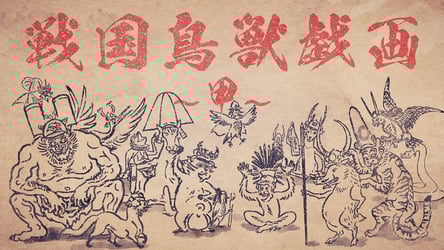 戦国鳥獣戯画
～甲～